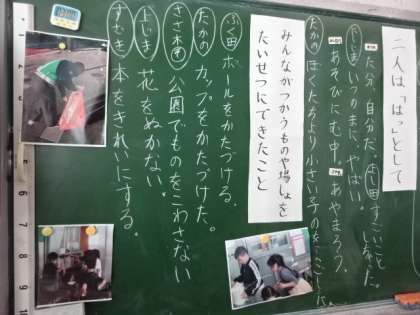 二人は「はっ」として
た分、自分だ。よし田 すごいことしちゃった。
だじま いつのまに、やばい。
あそびにむ中。あやまろう。
たかの ぼくたちより小さい子のをこ
みんながつかうものや場しょを
たいせつにできたこと
ふく田 ボールをかたづける。
たかの カップをかたづけた。
ささ木 公園でものをこわさない
よじま 花をぬかない。
すずき 本をきれいにする。